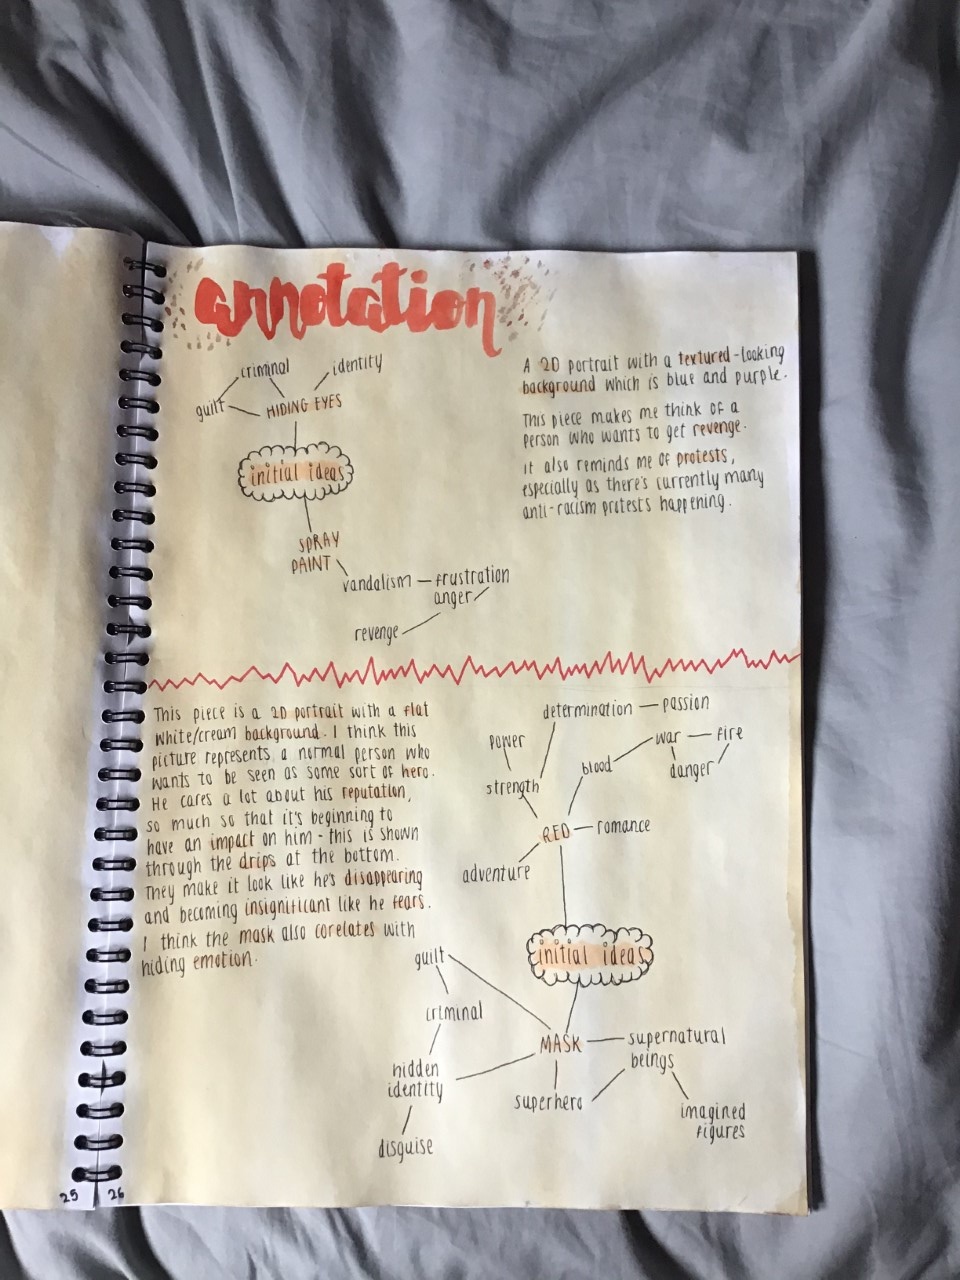 annotation
criminal
identity
guilt
HIDING EYES
initial ideas
SPRAY
PAINT
vandalism
frustration
anger
revenge
A 2D portrait with a textured-looking
background which is blue and purple.
This piece makes me think of a
person who wants to get revenge.
It also reminds me of protests,
especially as there's currently many
anti-racism protests happening.
This piece is a 2D portrait with a flat
white/cream background. I think this
picture represents a normal person who
wants to be seen as some sort of hero.
He cares a lot about his reputation,
so much so that it's beginning to
have an impact on him - this is shown
through the drips at the bottom.
They make it look like he's disappearing
and becoming insignificant like he fears.
I think the mask also corelates with
hiding emotion.
determination
passion
power
war
fire
blood
danger
strength
RED
romance
adventure
initial ideas
guilt
criminal
MASK
supernatural
beings
hidden
identity
superhero
imagined
figures
disguise
25
26